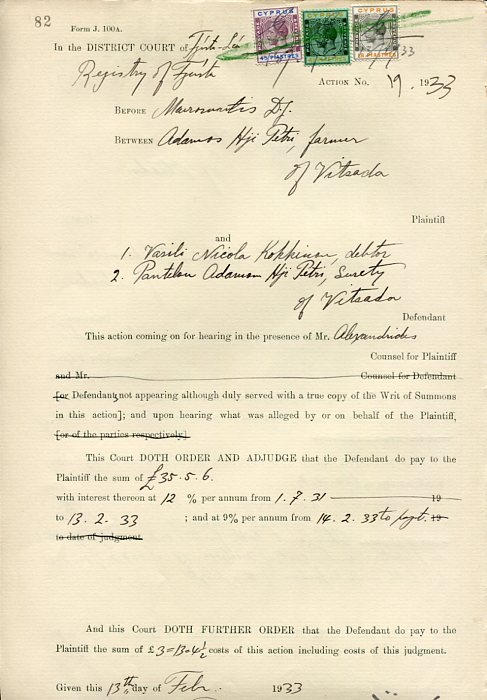 82
Form J. 100A.
CYPRUS CYPRUS CYPRUS
In the DISTRICT COURT of
45 PIASTRES
Registry of
ACTION No. 19. 1933
BEFORE Mavromatis D.J.
BETWEEN Adamos Hji Petri, farmer
of Vitsada
Plaintiff
and
1. Vasili Nicola Kokkinou, debtor
2. Pantelou Adamou Hji Petri, Surety
of Vitsada
Defendant
This action coming on for hearing in the presence of Mr. Alexandrides
Counsel for Plaintiff
and Mr. Counsel for Defendant
[or Defendants not appearing although duly served with a true copy of the Writ of Summons
in this action]; and upon hearing what was alleged by or on behalf of the Plaintiff,
[or of the parties respectively]
This Court DOTH ORDER AND ADJUDGE that the Defendant do pay to the
Plaintiff the sum of £35.5.6.
with interest thereon at 12 % per annum from 1.7.31 19
to 13.2.33 ; and at 9% per annum from 14.2.33 to payt. 19
to date of judgment
And this Court DOTH FURTHER ORDER that the Defendant do pay to the
Plaintiff the sum of £3=13=4½ costs of this action including costs of this judgment.
Given this 13th day of Feb. 1933